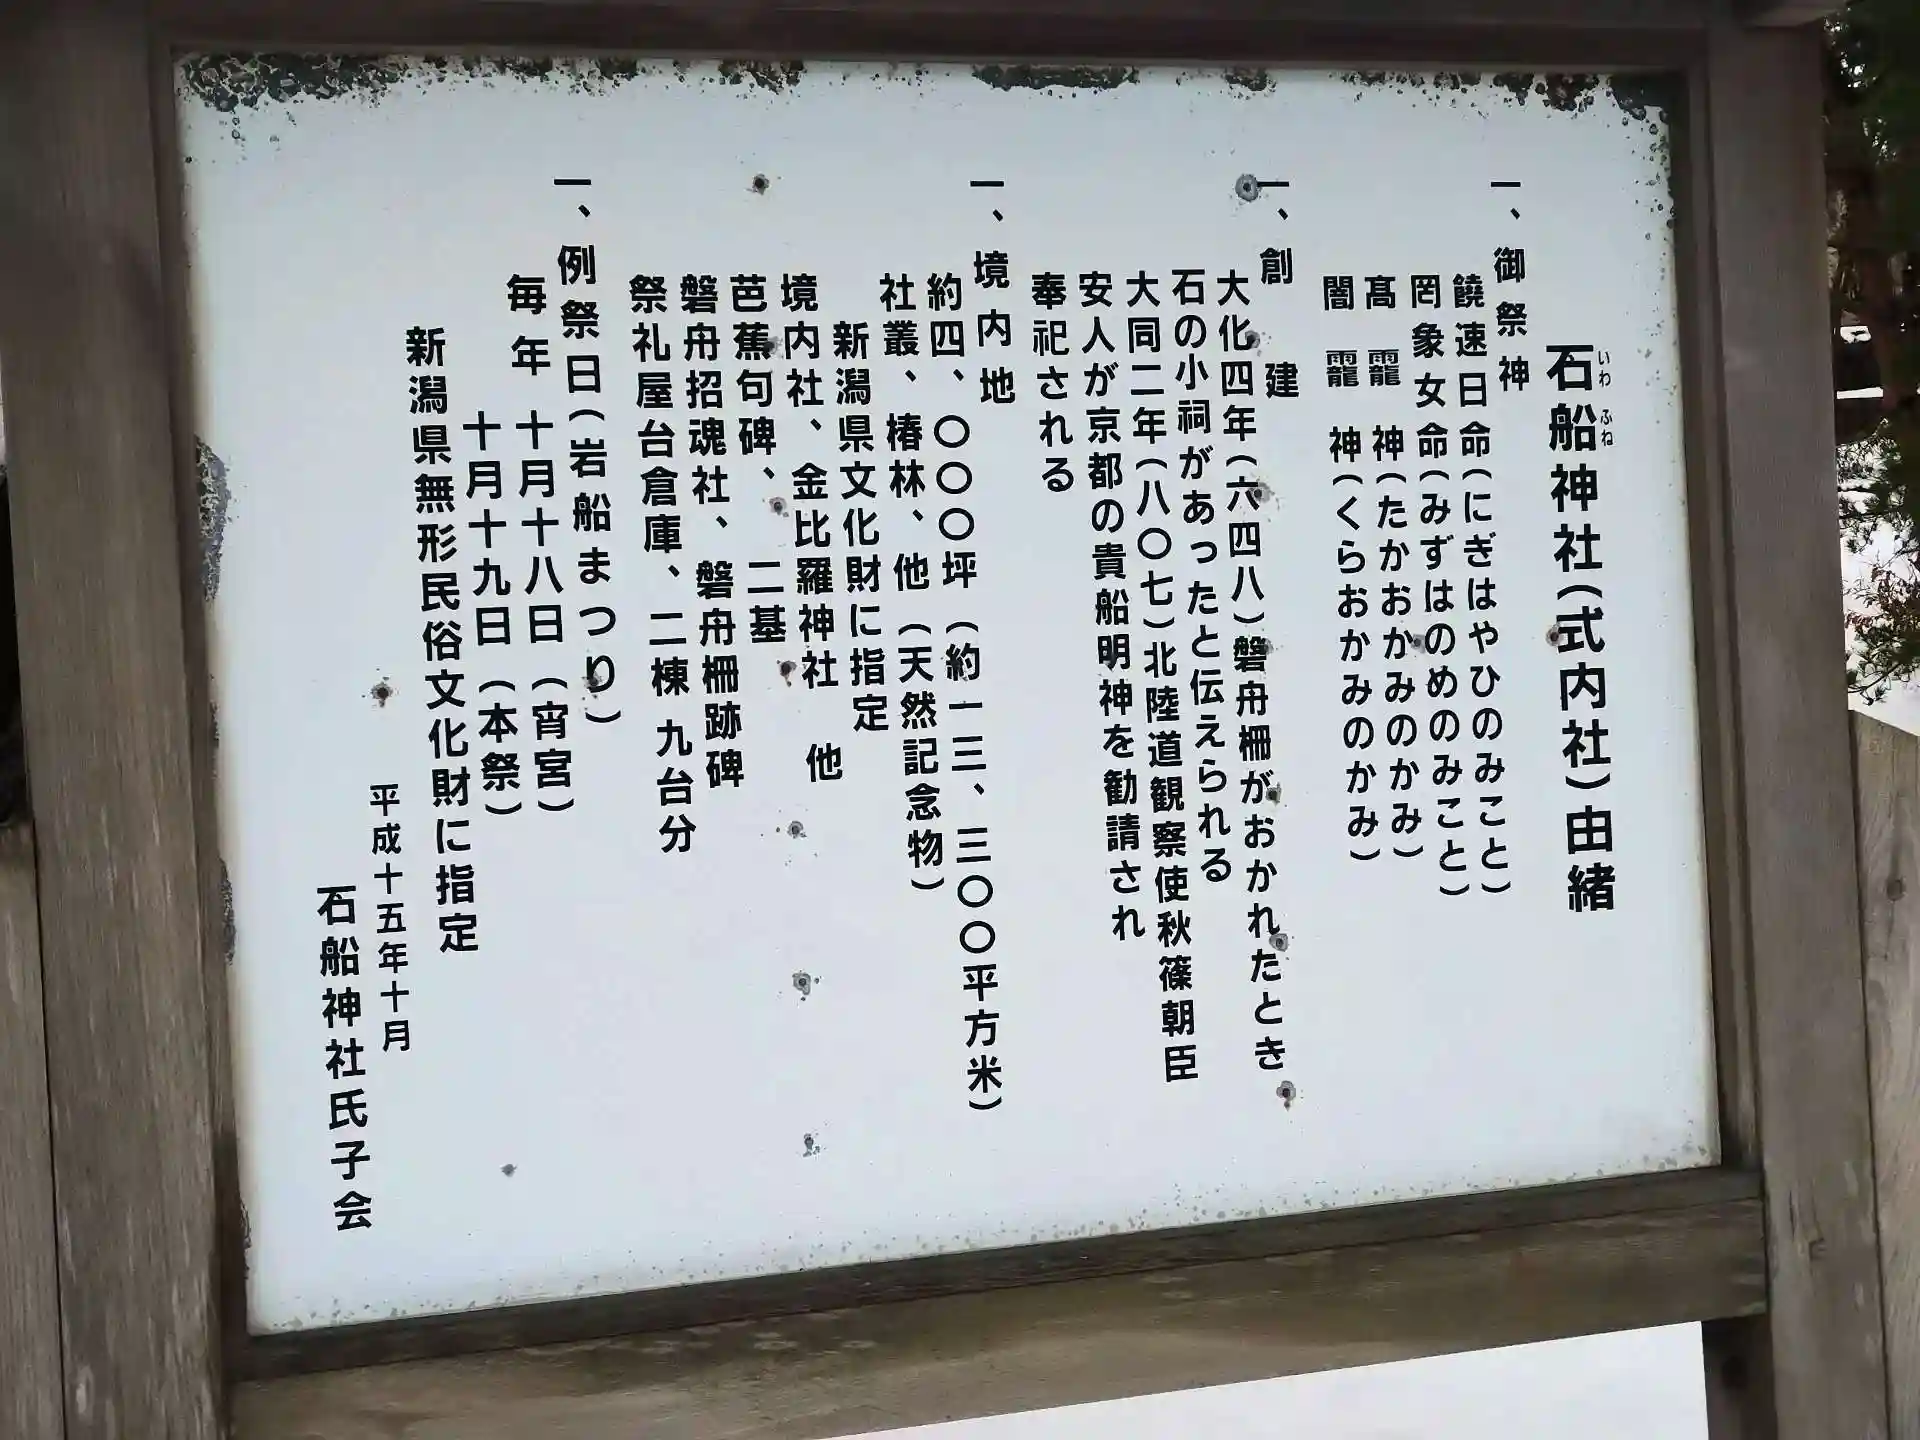 石船神社(式内社)由緒
いわ ふね
一、御祭神
饒速日命(にぎはやひのみこと)
罔象女命(みずはのめのみこと)
髙龗神(たかおかみのかみ)
闇龗神(くらおかみのかみ)
一、創建
大化四年(六四八)磐舟柵がおかれたとき
石の小祠があったと伝えられる
大同二年(八〇七)北陸道観察使秋篠朝臣
安人が京都の貴船明神を勧請され
奉祀される
一、境内地
約四、〇〇〇坪(約一三、三〇〇平方米)
社叢、椿林、他(天然記念物)
新潟県文化財に指定
境内社、金比羅神社 他
芭蕉句碑、二基
磐舟招魂社、磐舟柵跡碑
祭礼屋台倉庫、二棟 九台分
一、例祭日(岩船まつり)
毎年 十月十八日(宵宮)
十月十九日(本祭)
新潟県無形民俗文化財に指定
平成十五年十月
石船神社氏子会